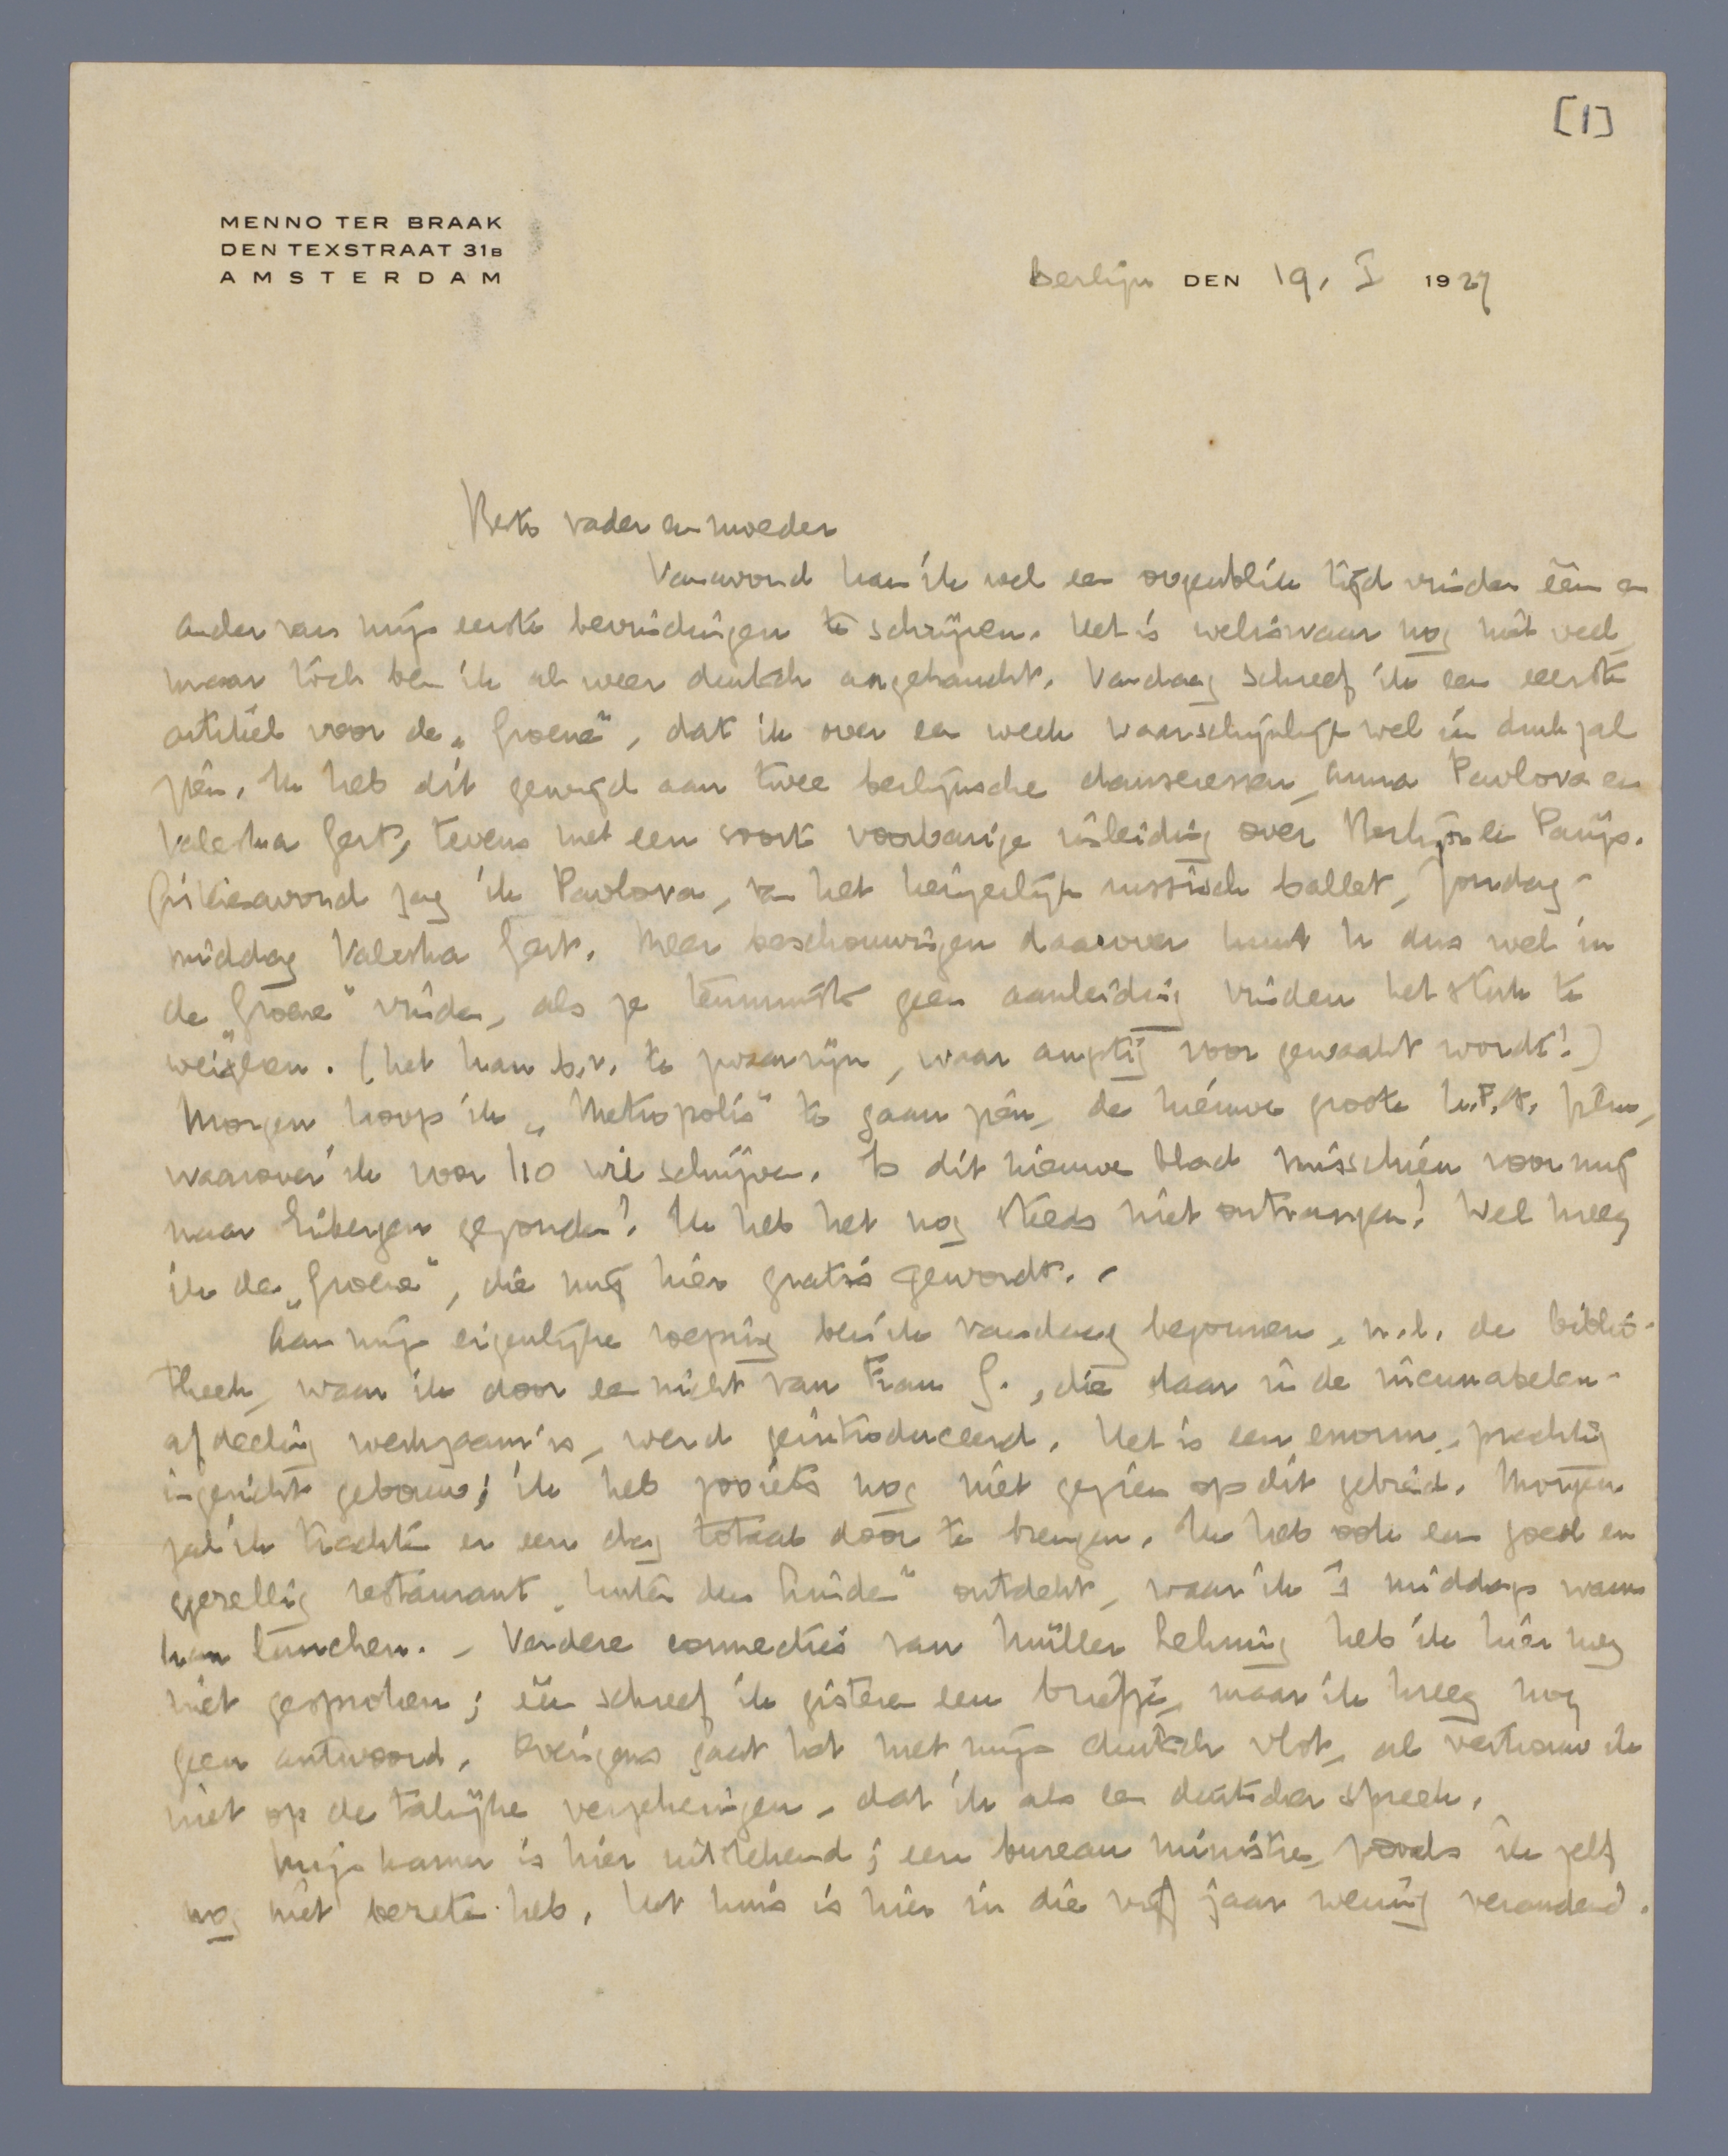 [1]
MENNO TER BRAAK
DEN TEXSTRAAT 31B
AMSTERDAM
Berlijn DEN 19. I 1927
Beste vader en moeder
Vanavond kan ik wel een oogenblik tijd vinden één en
ander van mijn eerste bevindingen te schrijven. Het is weliswaar nog niet veel,
maar toch ben ik al weer deutsch angehaucht. Vandaag schreef ik een eerste
artikel voor de „Groene", dat ik over een week waarschijnlijk wel in druk zal
zien. Ik heb dit gewijd aan twee berlijnsche danseressen, Anna Pavlova en
Valeska Gert, tevens met een soort voorbarige inleiding over Berlijn en Parijs.
Gisteravond zag ik Pavlova, van het keizerlijk russisch ballet, Zondag-
middag Valeska Gert. Meer beschouwingen daarover kunt U dus wel in
de „Groene" vinden, als ze tenminste geen aanleiding vinden het stuk te
weigeren. (het kan b.v. te zwaar zijn, waar angstig voor gewaakt wordt!)
Morgen hoop ik „Metropolis" te gaan zien, de nieuwe groote U.F.A. film,
waarover ik voor I10 wil schrijven. Is dit nieuwe blad misschien voor mij
naar Eibergen gezonden? Ik heb het nog steeds niet ontvangen! Wel kreeg
ik de „Groene", die mij hier gratis gewordt. -
Aan mijn eigenlijke roeping ben ik vandaag begonnen, n.l. de biblio-
theek, waar ik door een nicht van Frau G., die daar in de incunabelen-
afdeeling werkzaam is, werd geïntroduceerd. Het is een enorm, prachtig
ingericht gebouw; ik heb zooiets nog niet gezien op dit gebied. Morgen
zal ik trachten er een dag totaal door te brengen. Ik heb ook een goed en
gezellig restaurant „Unter den Linden" ontdekt, waar ik 's middags warm
kan lunchen. - Verdere connecties van Müller Lehning heb ik hier nog
niet gesproken; één schreef ik gisteren een briefje, maar ik kreeg nog
geen antwoord. Overigens gaat het met mijn duitsch vlot, al vertrouw ik
niet op de talrijke verzekeringen, dat ik als een duitscher spreek.
Mijn kamer is hier uitstekend; een bureau ministre, zooals ik zelf
nog niet bezeten heb. Het huis is hier in die vijf jaar weinig veranderd.